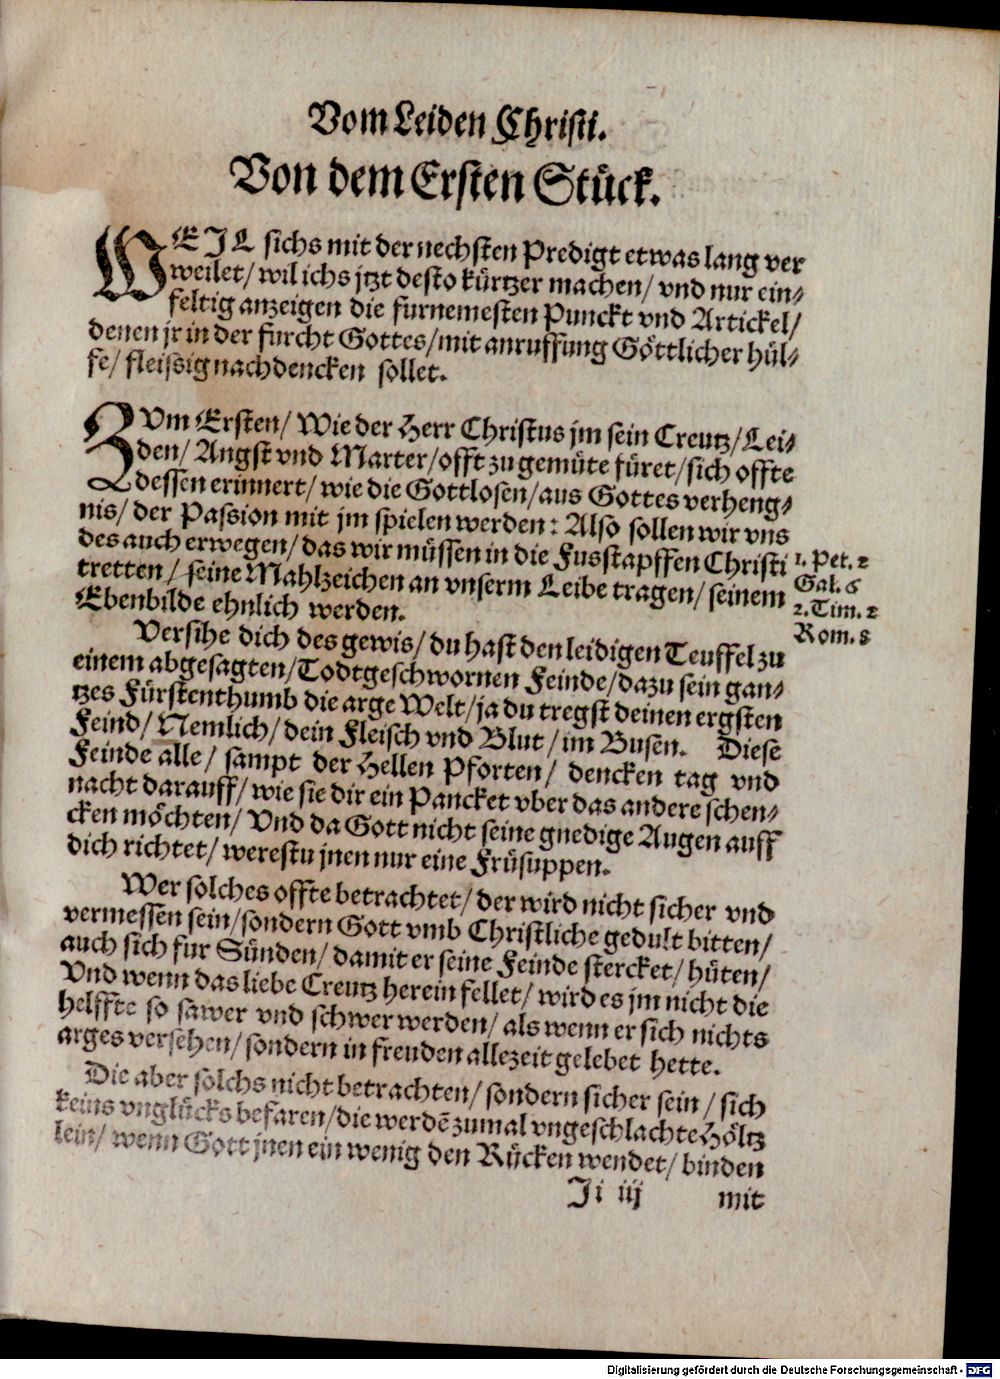 Vom Leiden Christi.
Von dem Ersten Stück.
WEJL sichs mit der nechsten Predigt etwas lang ver
weilet/ wil ichs jtzt desto kürtzer machen/ vnd nur ein-
feltig anzeigen die furnemesten Punckt vnd Artickel/
denen jr in der furcht Gottes/ mit anruffung Göttlicher hül-
fe/ fleissig nachdencken sollet.
ZVm Ersten/ Wie der Herr Christus jm sein Creutz/ Lei-
den/ Angst vnd Marter/ offt zu gemüte füret/ sich offte
dessen erinnert/ wie die Gottlosen/ aus Gottes verheng-
nis/ der Passion mit jm spielen werden: Also sollen wir vns
des auch erwegen/ das wir müssen in die Fusstapffen Christi
1. Pet. 2
tretten/ seine Mahlzeichen an vnserm Leibe tragen/ seinem
Gal. 6
Ebenbilde ehnlich werden.
2. Tim. 2
Rom. 8
Versihe dich des gewis/ du hast den leidigen Teuffel zu
einem abgesagten/ Todtgeschwornen Feinde/ dazu sein gan-
tzes Fürstenthumb die arge Welt/ ja du tregst deinen ergsten
Feind/ Nemlich/ dein Fleisch vnd Blut/ im Busen. Diese
Feinde alle/ sampt der Hellen Pforten/ dencken tag vnd
nacht darauff/ wie sie dir ein Pancket vber das andere schen-
cken möchten/ Vnd da Gott nicht seine gnedige Augen auff
dich richtet/ werestu jnen nur eine Früsuppen.
Wer solches offte betrachtet/ der wird nicht sicher vnd
vermessen sein/ sondern Gott vmb Christliche gedult bitten/
auch sich fur Sünden/ damit er seine Feinde stercket/ hüten/
Vnd wenn das liebe Creutz herein fellet/ wird es jm nicht die
helffte so sawer vnd schwer werden/ als wenn er sich nichts
arges versehen/ sondern in freuden allezeit gelebet hette.
Die aber solchs nicht betrachten/ sondern sicher sein/ sich
keins vnglücks befaren/ die werdē zumal vngeschlachte Höltz
lein/ wenn Gott jnen ein wenig den Rücken wendet/ binden
Ji iij mit
Digitalisierung gefördert durch die Deutsche Forschungsgemeinschaft - DFG